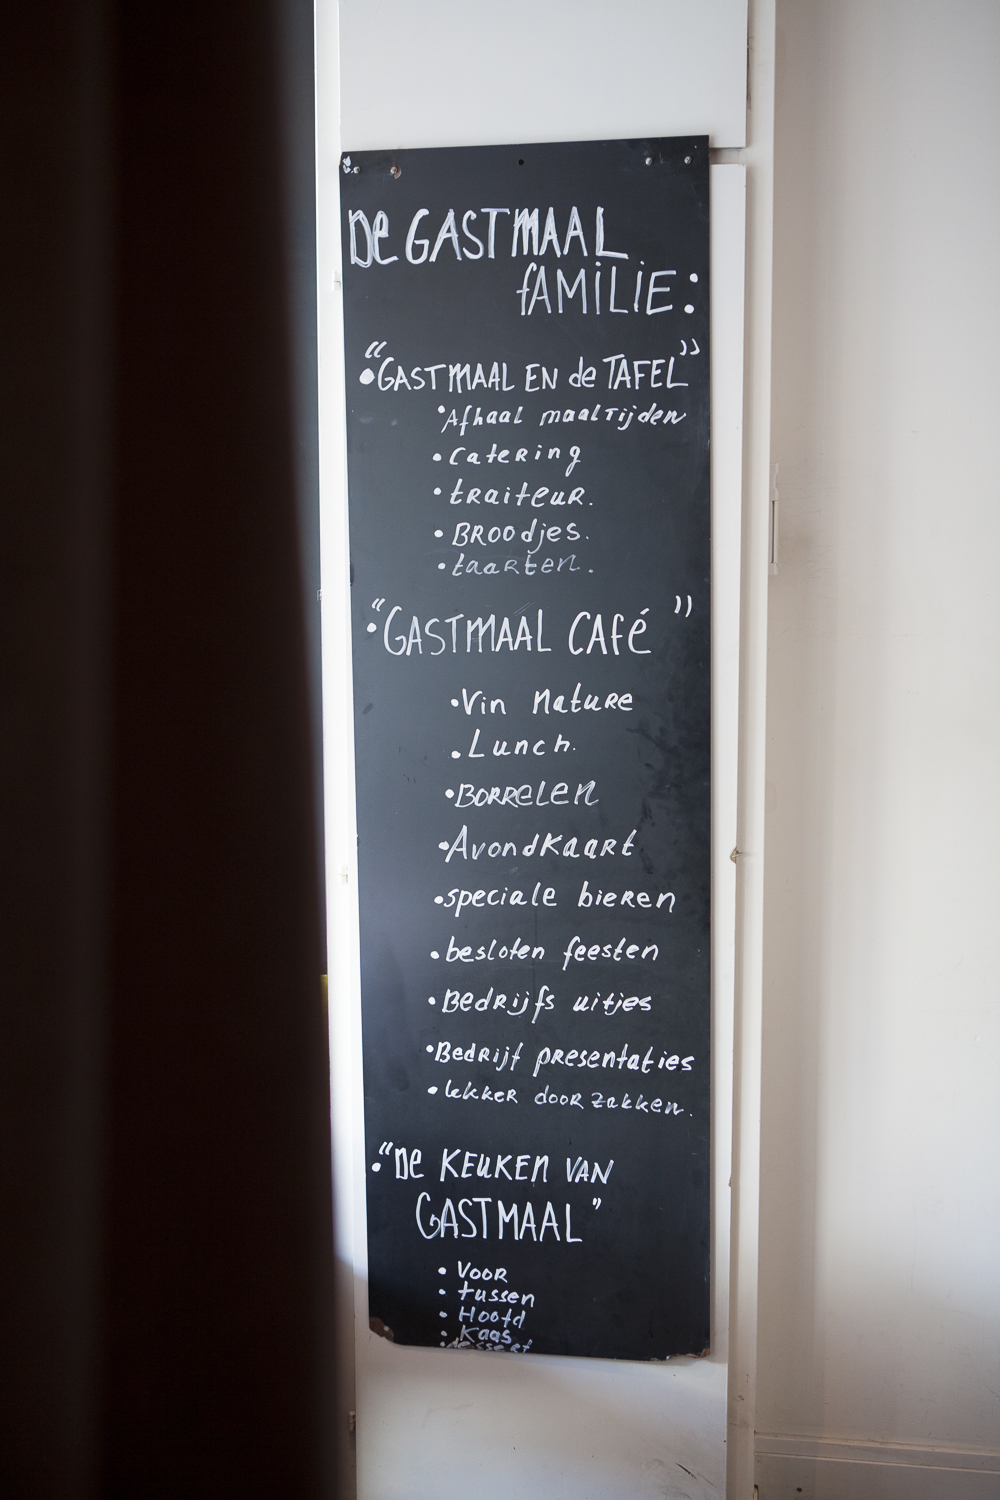 De GASTMAAL
fAMiLiE:
• "GASTMAAL EN de TAFEL"
• Afhaal maalTijden
• Catering
• traiteur.
• BROOdjes.
• taarten.
• "GASTMAAL CAfé"
• Vin Nature
• Lunch.
• BORRELEN
• AvondKaart
• speciale bieren
• besloten feesten
• Bedrijfs uitjes
• Bedrijf presentaties
• lekker door zakken.
• "De KEUKEN VAN
GASTMAAL"
• Voor
• tussen
• Hoofd
• Kaas
• dessert